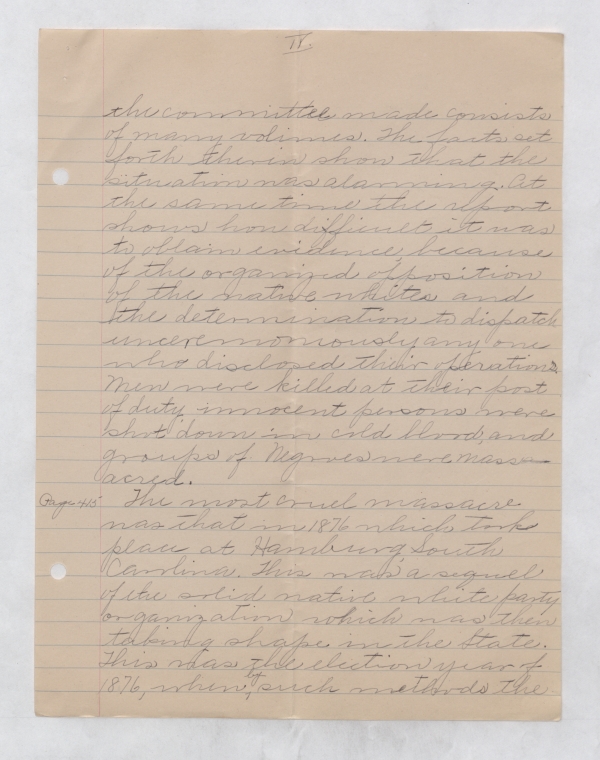 IV.
the committee made consists
of many volimes. The facts set
forth therin show that the
situation was alarming. At
the same time the report
shows how difficult it was
to obtain evidence, because
of the organized opposition
of the native whites and
the determination to dispatch
unceremoniously any one
who disclosed their operations.
Men were killed at their post
of duty, innocent persons were
shot down in cold blood, and
groups of Negroes were mass-
acred.
Page 415 The most cruel massacre
was that in 1876 which took
place at Hamburg, South
Carolina. This was a sequel
of the solid native white party
organization which was then
taking shape in the State.
This was the election year of
1876, when by such methods the